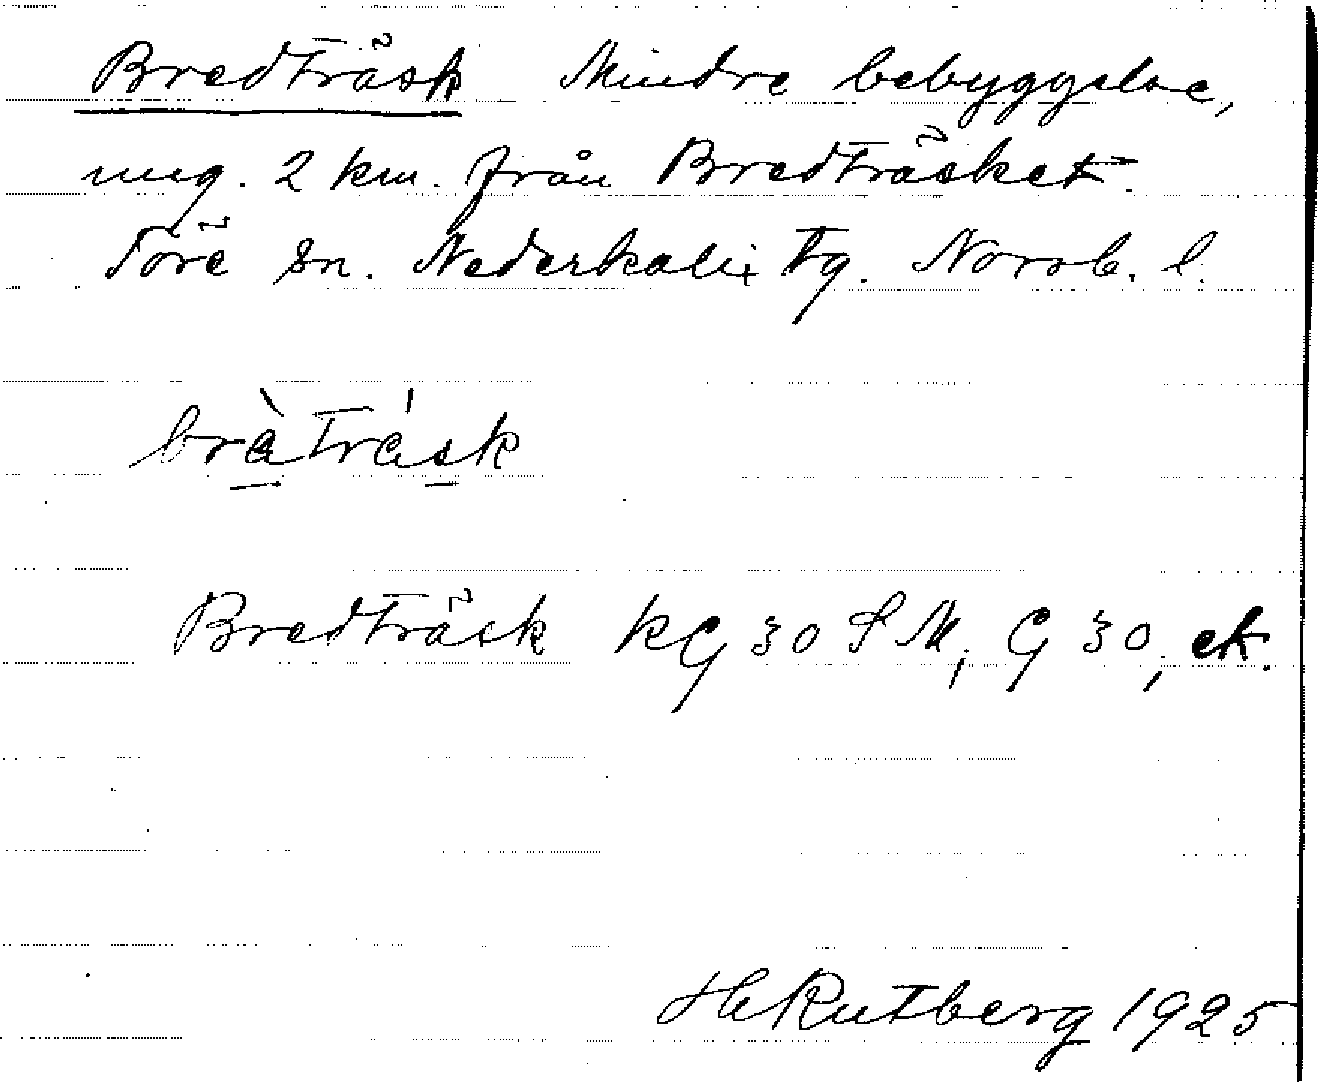 Bredträsk Mindre bebyggelse,
ung. 2 km. från Bredträsket.
Töre sn. Nederkalix tg. Norrb. l.
bràtrásk
Bredträsk KG 30 SM; G 30, ek.
H Rutberg 1925